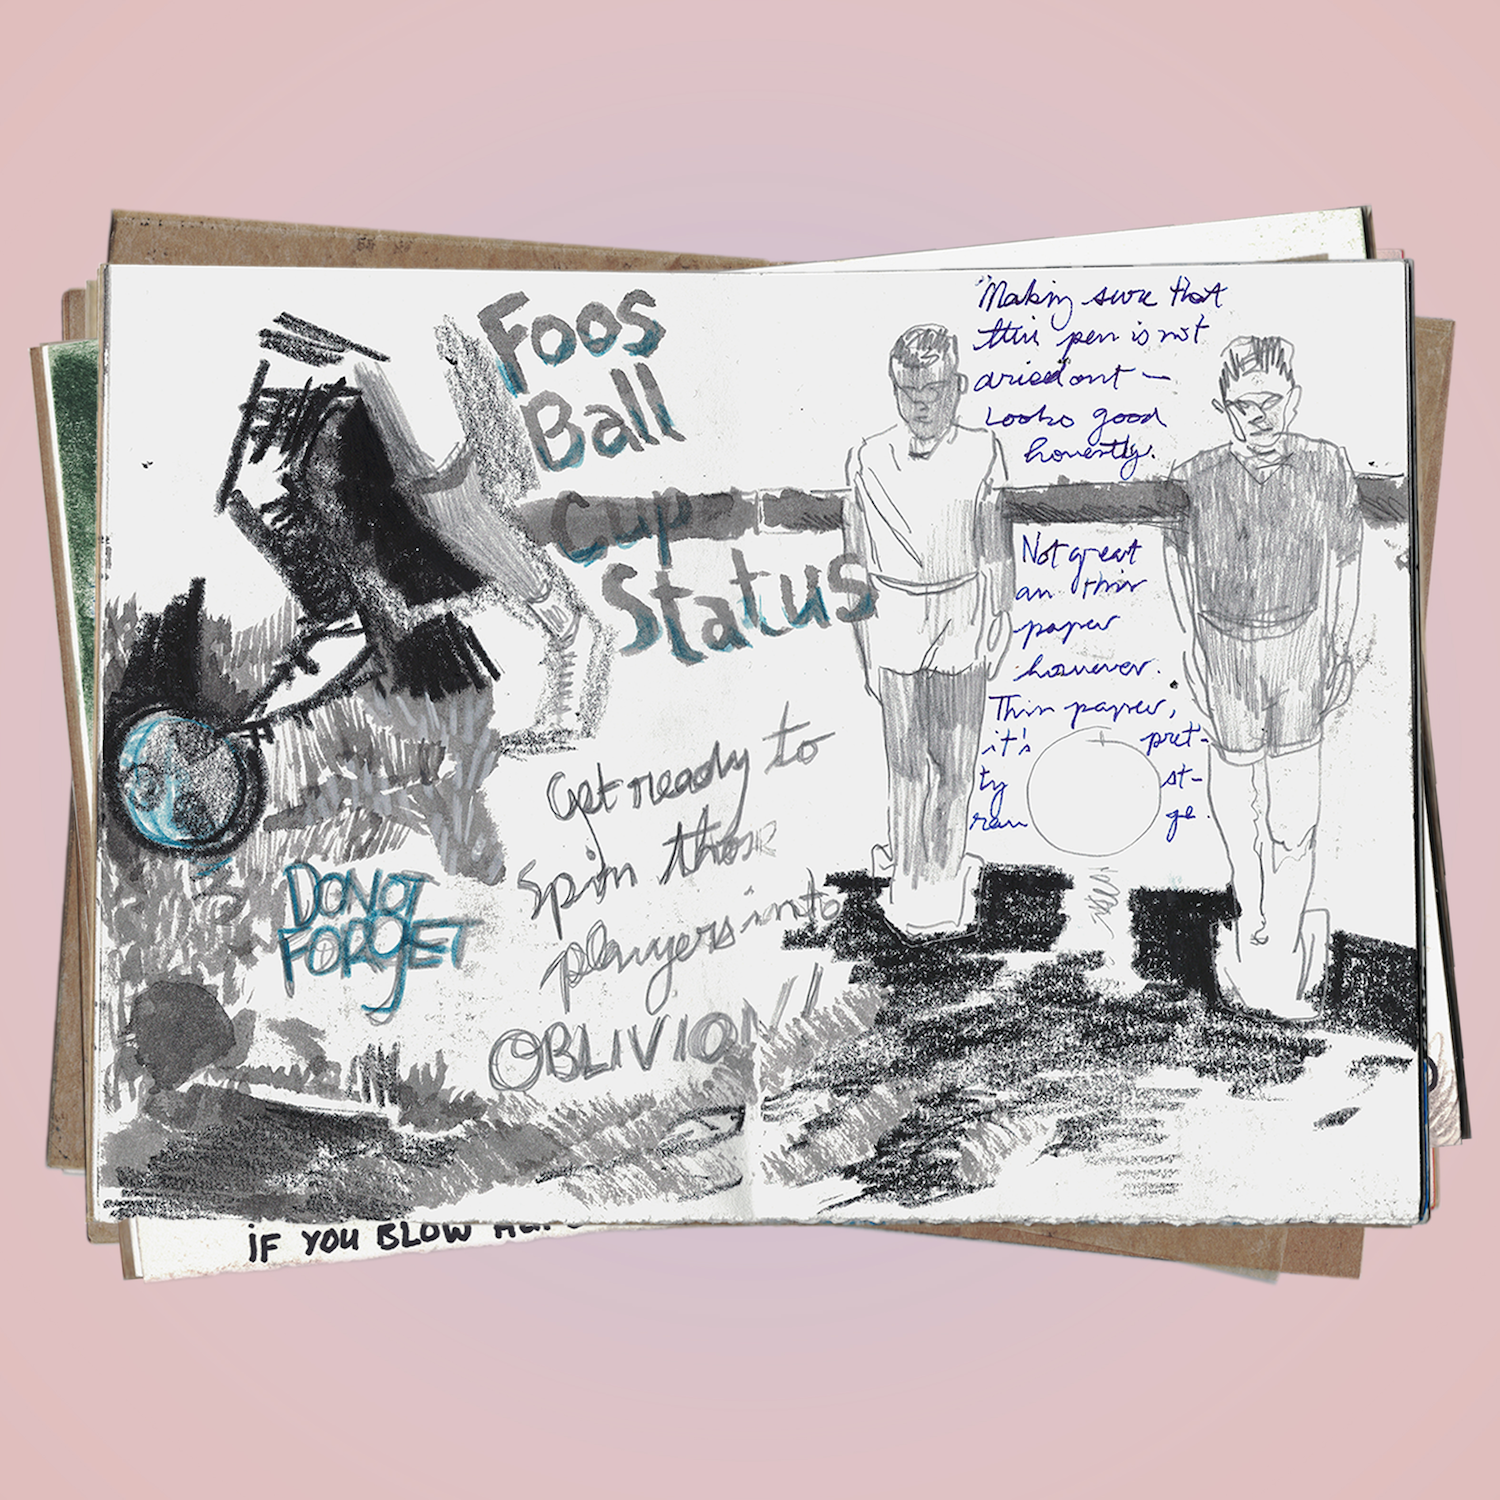 Foos
Ball
Cup
Status
Get ready to
Spin those
players into
OBLIVION!!
DO NOT
FORGET
"Making sure that
this pen is not
dried out —
Looks good
honestly.
Not great
on this
paper
however.
This paper,
it's pret-
ty st-
ran ge.
iF YOU BLOW